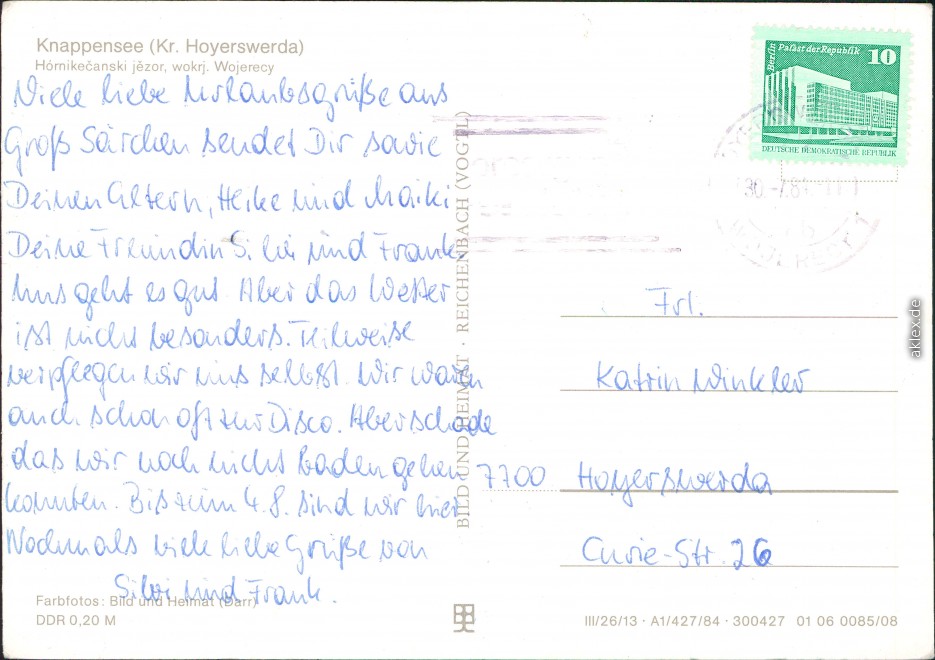 Knappensee (Kr. Hoyerswerda)
Hórnikečanski jězor, wokrj. Wojerecy
Viele liebe Urlaubsgrüße aus
Groß Särchen sendet Dir sowie
Deinen Eltern, Heike und Maiki
Deine Freundin Silvi und Frank
Uns geht es gut. Aber das Wetter
ist nicht besonders. Teilweise
verpflegen wir uns selbst. Wir waren
auch schon oft zur Disco. Aber schade
das wir noch nicht baden gehen
konnten. Bis zum 4.8. sind wir hier
Nochmals viele liebe Grüße von
Silvi und Frank.
Farbfotos: Bild und Heimat (Darr)
DDR 0,20 M
BILD UND HEIMAT · REICHENBACH (VOGTL)
Berlin
Palast der Republik
10
DEUTSCHE DEMOKRATISCHE REPUBLIK
30.-7.84-11
Frl.
Katrin Winkler
7700 Hoyerswerda
Curie-Str. 26
III/26/13 · A1/427/84 · 300427 01 06 0085/08
aklex.de